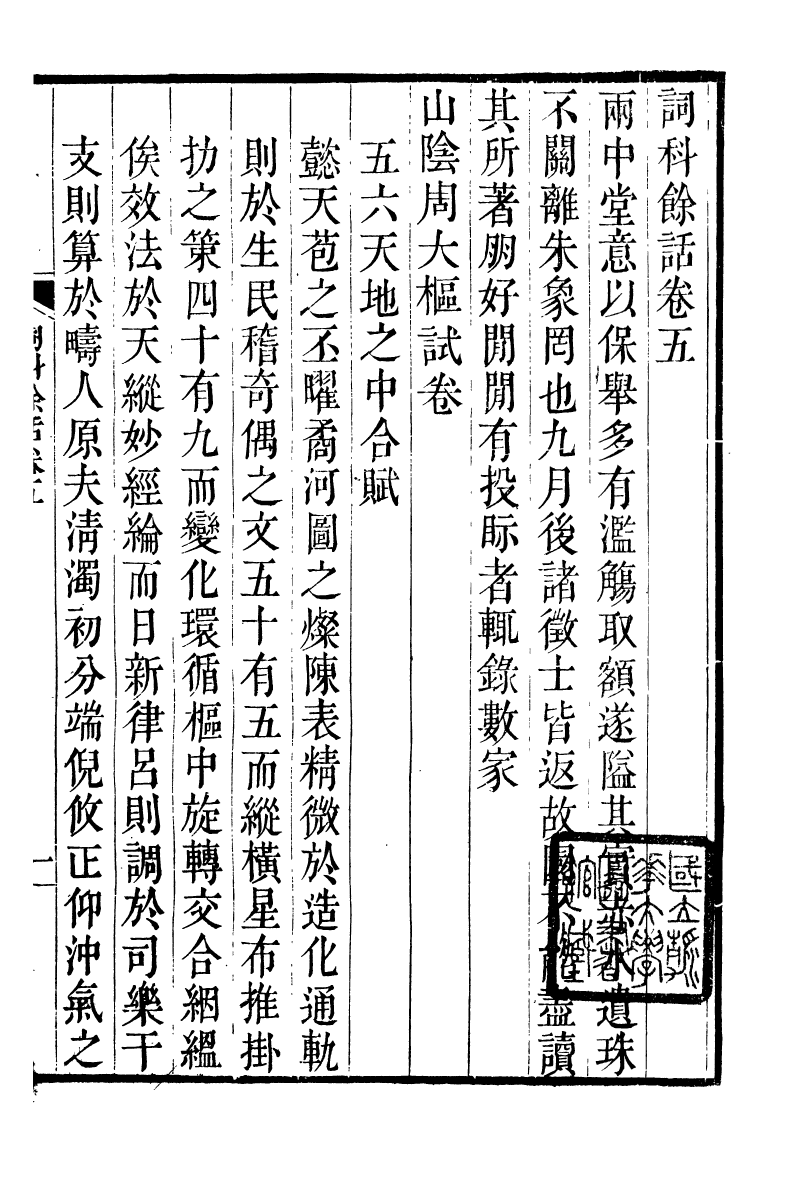 詞科餘話卷五
兩中堂意以保舉多有濫觴取額遂隘其實赤水遺珠
不關離朱象罔也九月後諸徵士皆返故園不能盡讀
其所著朋好閒閒有投眎者輒錄數家
山陰周大樞試卷
五六天地之中合賦
懿天苞之丕曜矞河圖之燦陳表精微於造化通軌
則於生民稽奇偶之文五十有五而縱橫星布推掛
扐之策四十有九而變化環循樞中旋轉交合絪縕
俟效法於天縱妙經綸而日新律呂則調於司樂干
支則算於疇人原夫淸濁初分端倪攸正仰沖氣之
詞科餘話卷五
一